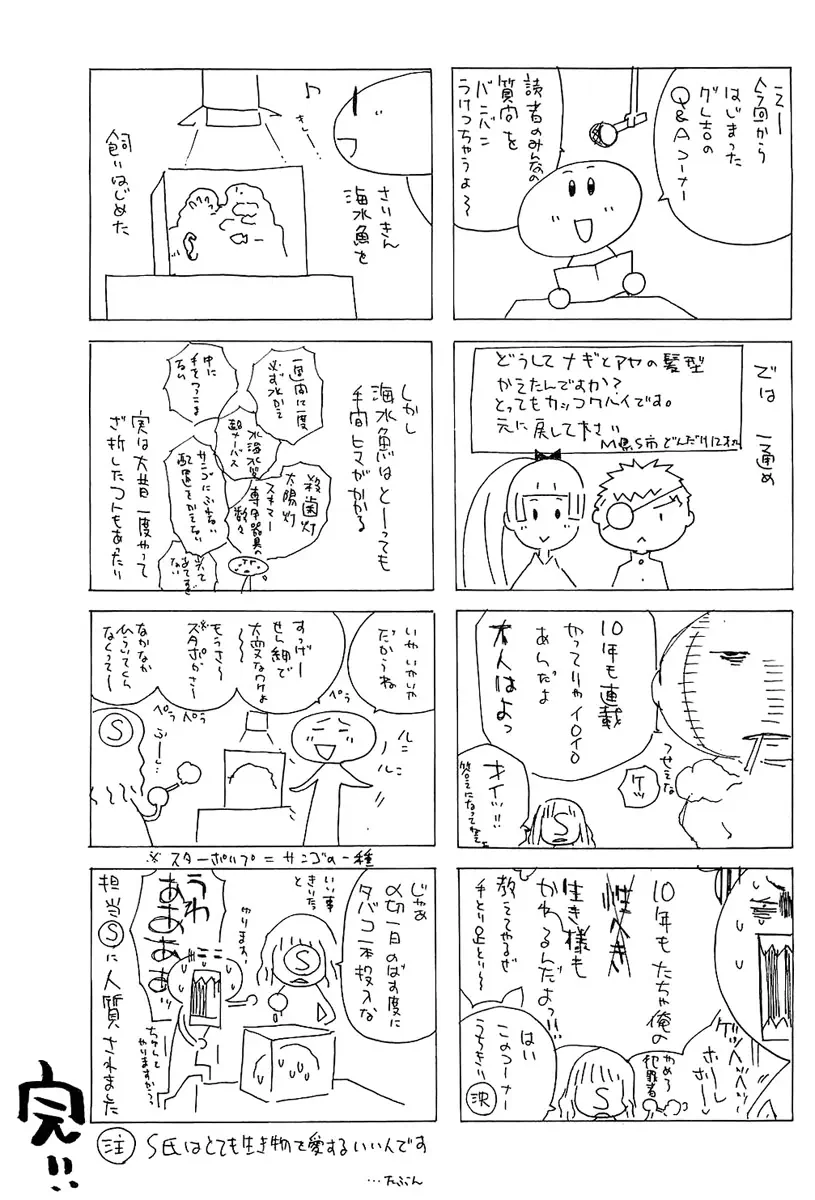 えー
今回から
はじまった
グレ吉の
Q&Aコーナー
読者のみんなの
質問を
バンバン
うけつちゃうよ〜
では一通め
どうしてナギとアヤの髪型
かえたんですか?
とってもカッコワバイです。
元に戻して下さい
M県S市
10年も連載
やってりゃイロイロ
あんだよ
大人はよっ
うっせえな
ケッ
オイッ!!
S
10年もたちゃ俺の
性へき
生き様も
かわるんだよっ!!
教えてやるぜ
手とり足とり〜
ゲッヘッヘッ
やめろ
犯罪者
S
はい
このコーナー
うちきりぃ
決
さいきん
海水魚を
飼いはじめた
♪
しかし
海水魚はとーっても
手間ヒマがかかる
一週間に一度
必ず水かえ
中に
手をつっこま
ない
水質
殺菌灯
太陽灯
スキマー
専用器具の
数々
サンゴにふれない
配置をかえない
実は大昔一度やって
ざ折したコトもあったり
いやいやいや
ちがうね
すっげー
せん細で
大変なワケよ
〜〜
もうさ〜
※スタポがさー
なかなか
ひらいてくん
なくって〜
ペラ
ペラ
ペラ
ふーん…
S
※スターポリプ=サンゴの一種
じゃあ
〆切一日のばす度に
タバコ一本投入な
いい事
きいた
と
S
やりますか
うわ
あああぁ
ちゃんと
やりますから
担当Sに人質されました
完!!
注 S氏はとても生き物を愛するいい人です
…たぶん